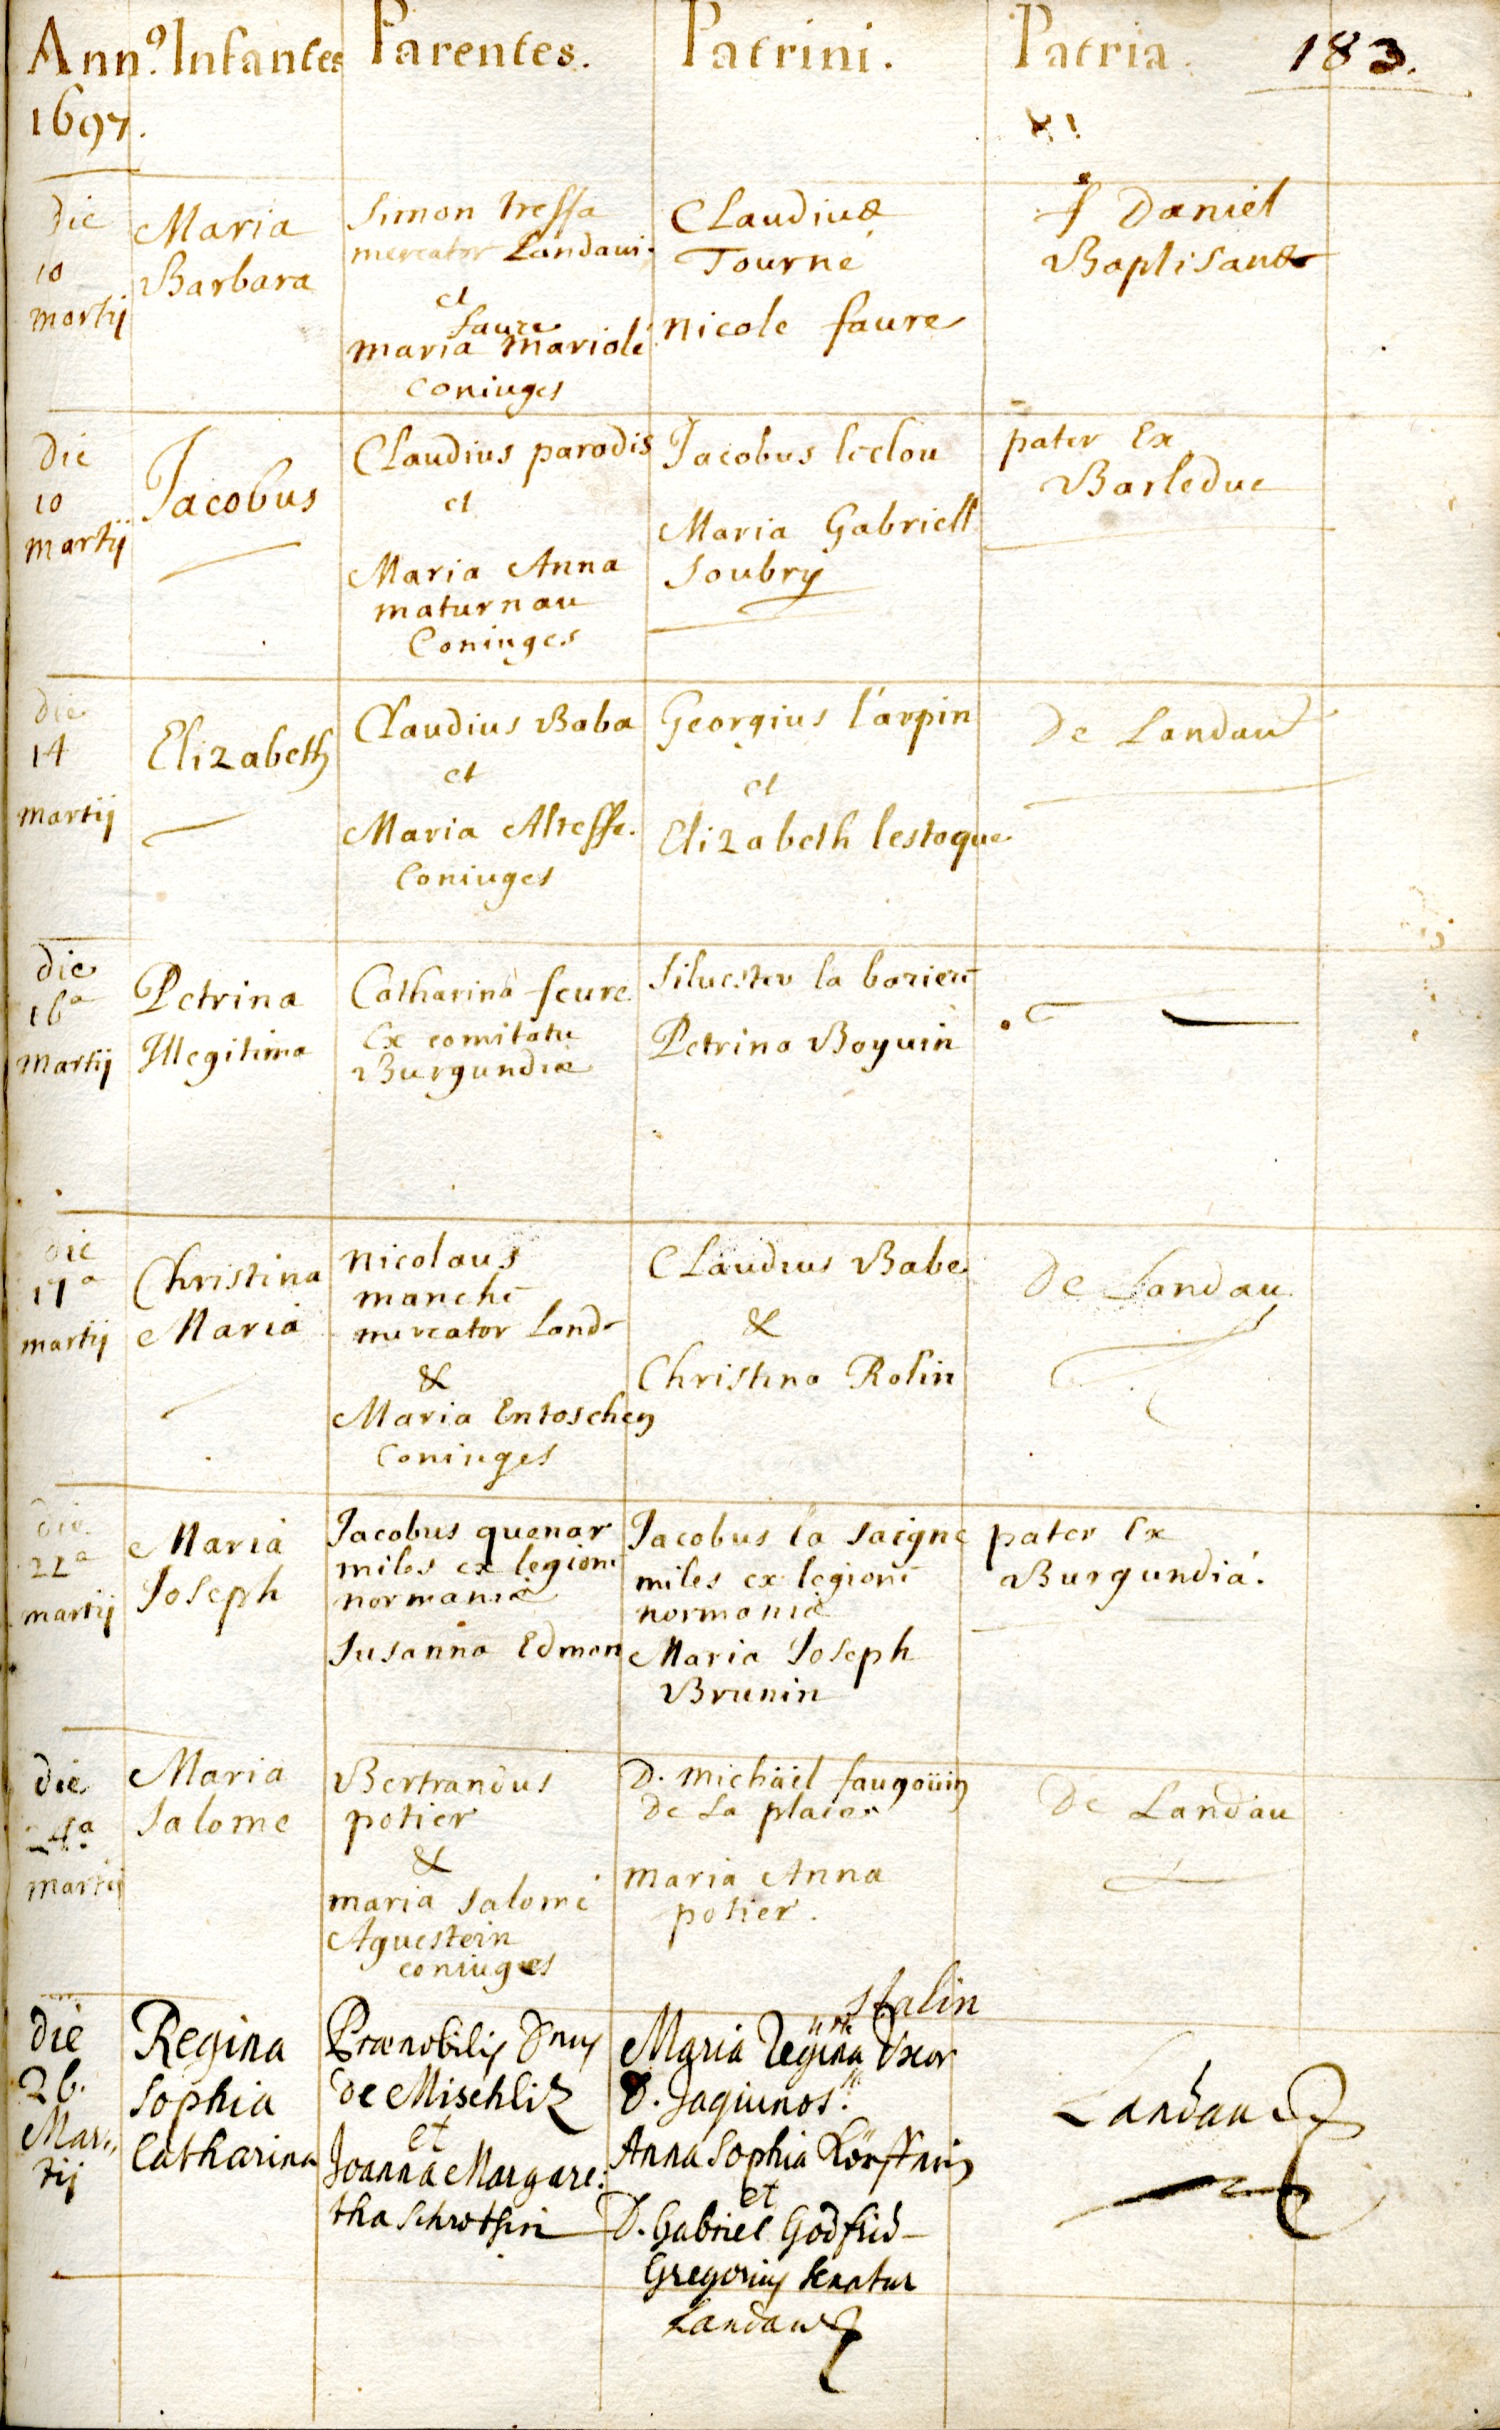 Ann.º Infantes Parentes. Patrini. Patria. 183.
1697.
Die
10
martij
Maria
Barbara
Simon tressa
mercator Landaui.
et
faure
maria mariolé
coniuges
Claudius
Tourne
nicole faure
f Daniel
Baptisans
Die
10
martij
Jacobus
Claudius paradis
et
Maria Anna
maturnau
Coniuges
Jacobus leclou
Maria Gabriell
Soubry
pater Ex
Barleduc
die
14
martij
Elizabeth
Claudius Baba
et
Maria Altesse.
Coniuges
Georgius l'arpin
et
Elizabeth lestoque
De Landau
die
16a
Martij
Petrina
Illegitima
Catharina feure
Ex comitatu
Burgundiæ
Siluester la bariere
Petrina Boyuin
die
17a
martij
Christina
Maria
nicolaus
manche
mercator Land
&
Maria Entoschen
Coniuges
Claudius Babe
&
Christina Rolin
De Landau
die
22a
martij
Maria
Joseph
Jacobus quenar
miles ex legione
normaniæ
Susanna Edmon
Jacobus la saigne
miles ex legione
normaniæ
Maria Joseph
Brunin
pater Ex
Burgundiá.
die
24a
martij
Maria
Salome
Bertrandus
potier
&
maria salomé
Aguestein
coniuges
D. michäel faugoüin
De La place
maria Anna
potier.
De Landau
die
26.
Mar,,
tij
Regina
Sophia
Catharina
Prænobilis Dnus
de Mischliz
et
Joanna Margare:
tha Schrotsin
stalin
Maria Regina Uxor
D. Jagiunos.
Anna Sophia Körffnin
et
D. Gabriel Godfrid
Gregorius Senator
Landau
Landau